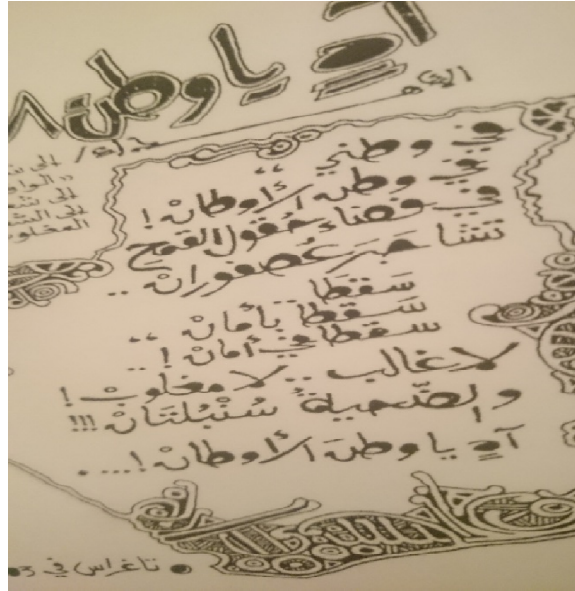 آهٍ يا وطن
إهداء/
إلى
إلى
إلى
في وطني ،،
في وطن الأوطانْ !
في فضاء حُقول القمح
تشاجَرَ عُصفورانْ ..
سَقطَا
سَقطَا بأمانْ ،،
سقطا في أمانْ !..
لا غالب .. لا مغلوبْ !
والضّحيةُ سُنْبُلتَانْ !!!
آهٍ يا وطنَ الأوطانْ !... .
تاغراس في